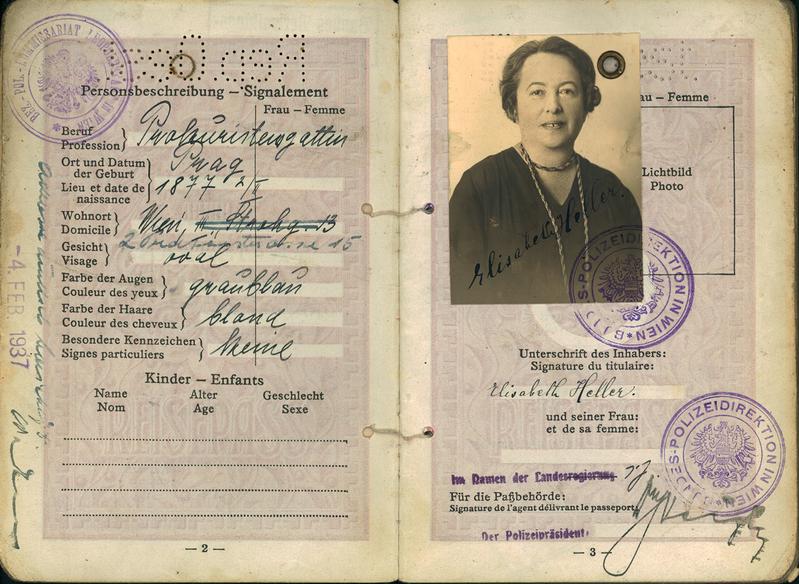 BEZ.-POL.-KOMMISSARIAT
IN WIEN
Personsbeschreibung – Signalement
Frau – Femme
Beruf
Profession
Ort und Datum
der Geburt
Prag
Lieu et date de
naissance
1877
Wohnort
Domicile
Wien, III., 13
2 15
Gesicht
Visage
oval
Farbe der Augen
Couleur des yeux
graublau
Farbe der Haare
Couleur des cheveux
blond
Besondere Kennzeichen
Signes particuliers
keine
Kinder – Enfants
Name Alter Geschlecht
Nom Age Sexe
– 2 –
-4. FEB. 1937
Frau – Femme
Lichtbild
Photo
Elisabeth Heller.
POLIZEIDIREKTION IN WIEN
Unterschrift des Inhabers:
Signature du titulaire:
Elisabeth Heller.
und seiner Frau:
et de sa femme:
BUNDES-POLIZEIDIREKTION IN WIEN
Im Namen der Landesregierung
Für die Paßbehörde:
Signature de l'agent délivrant le passeport:
Der Polizeipräsident:
– 3 –